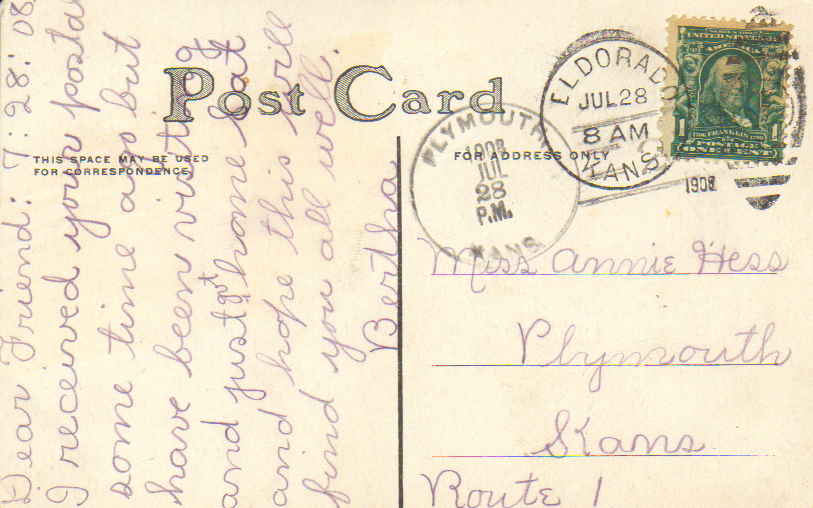 Post Card
THIS SPACE MAY BE USED
FOR CORRESPONDENCE
FOR ADDRESS ONLY
Dear Friend: 7:28:'08
I received your posta
some time ago but
have been visiting
and just got home Sat
and hope this will
find you all well.
Bertha
PLYMOUTH
1908
JUL
28
P.M.
KANS
ELDORADO
JUL 28
8 AM
KANS
1908
UNITED STATES
OF AMERICA
1
FRANKLIN
POSTAGE
ONE CENT
Miss Annie Hess
Plymouth
Kans
Route 1